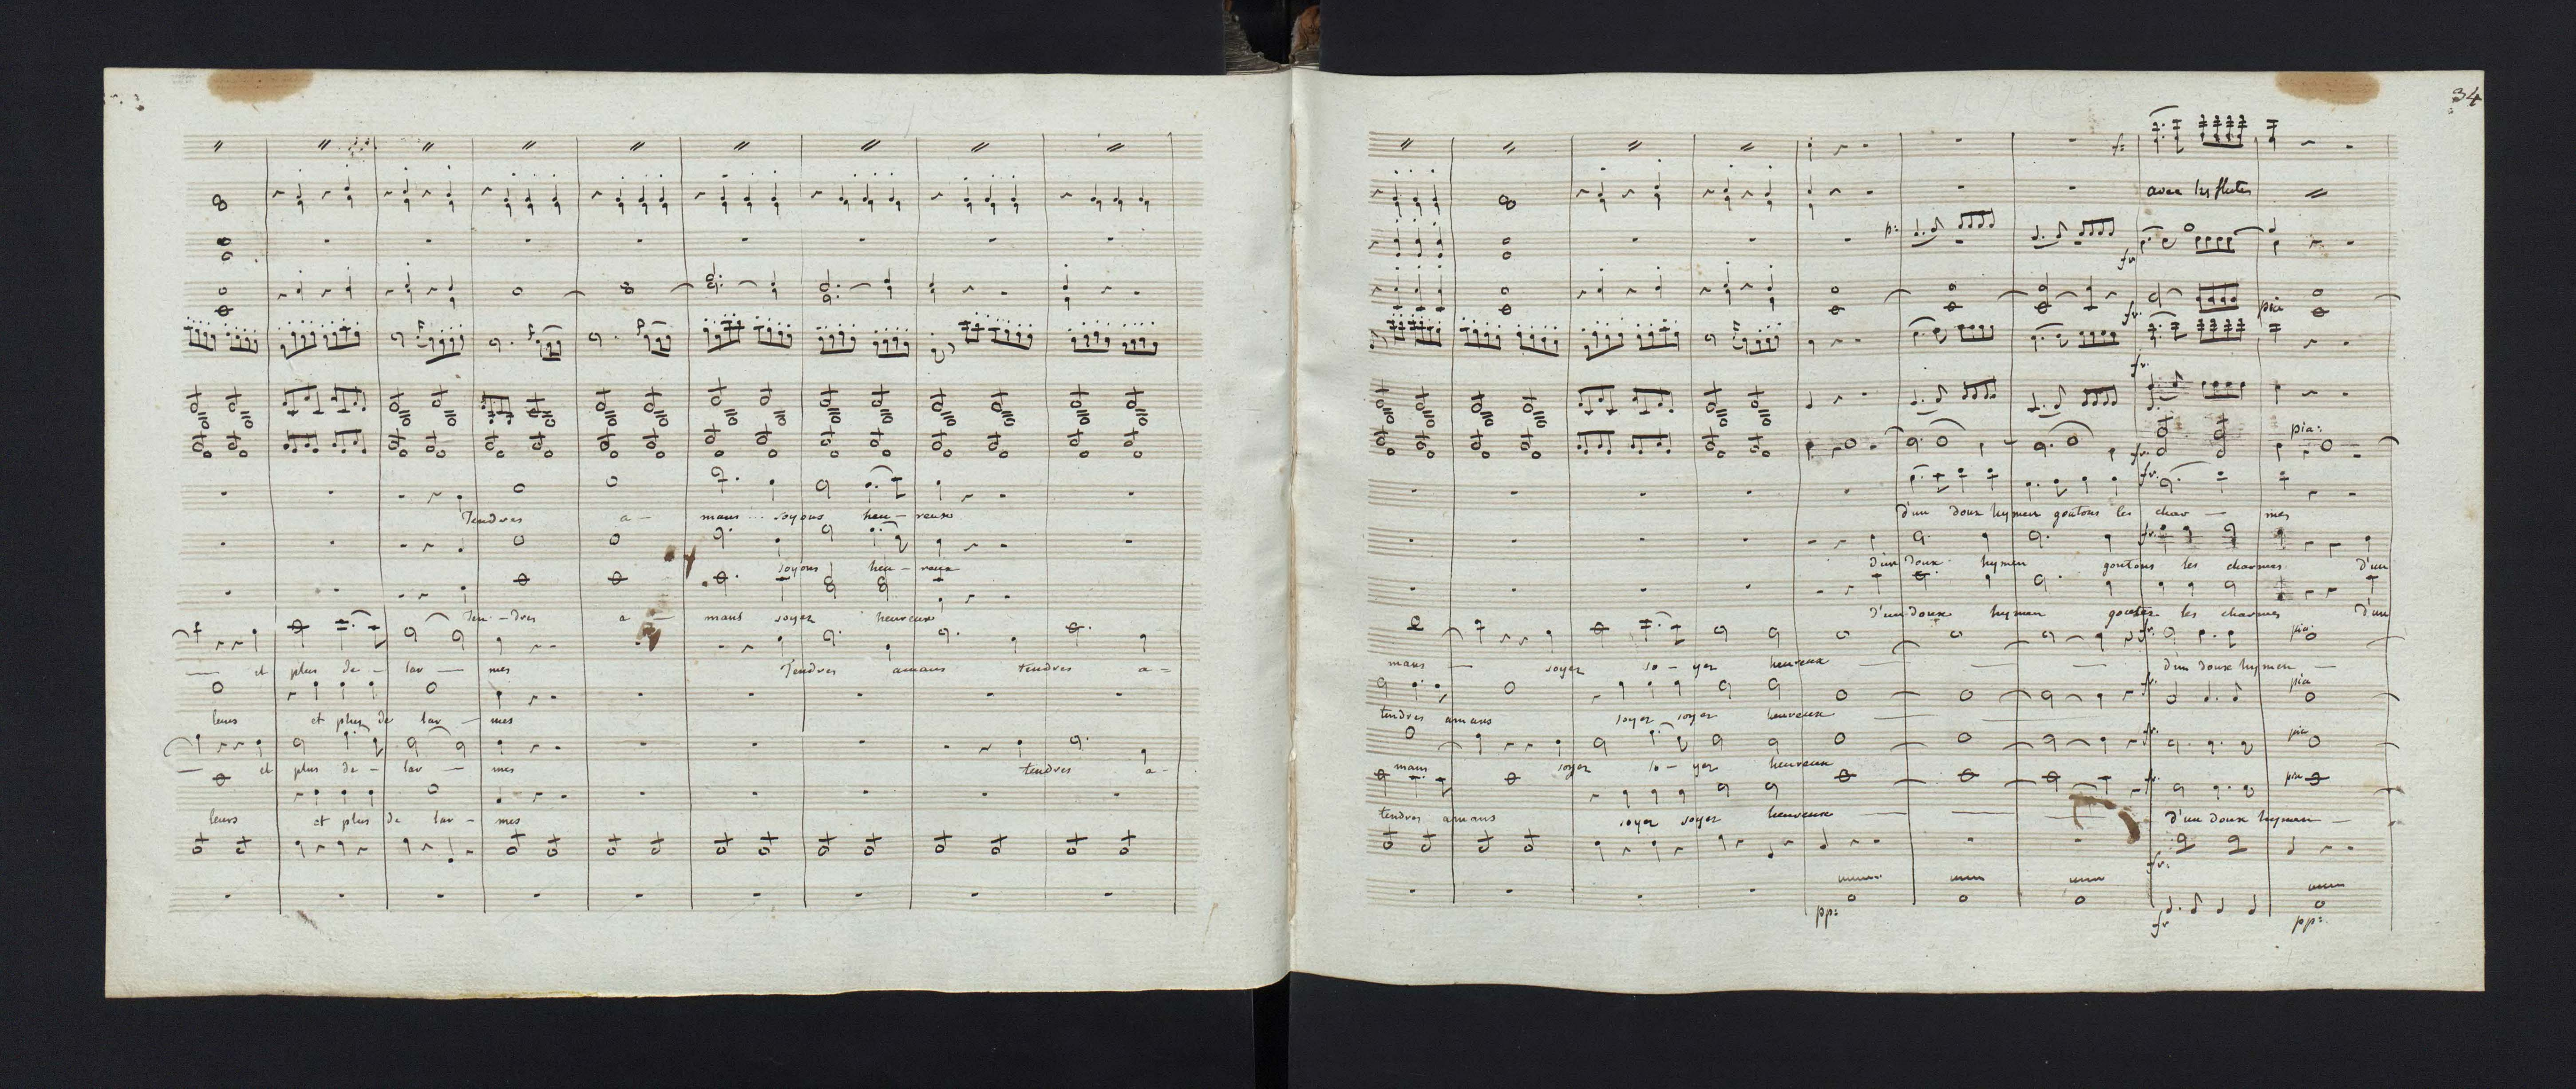 Tendres a - mans soyons heu - reux
soyons heu - reux
Ten - dres a - mans soyez heureux
et plus de - lar - mes Tendres amans tendres a =
leurs et plus de lar - mes
et plus de - lar - mes tendres a -
leurs et plus de lar - mes
34
f:
avec les flutes
p:
fr
fr. pia
fr.
pia:
fr.
fr.
d'un doux hymen goutons les char - mes
fr.
d'un doux hymen goutons les charmes d'un
d'un doux hymen goutez les charmes d'un
fr. pia
mans - soyez so - yez heureux - - - d'un doux hymen -
fr. pia
tendres amans soyez soyez heureux
fr. pia
mans soyez so - yez heureux
fr. pia
tendres amans soyez soyez heureux - - - d'un doux hymen -
fr.
pp: fr pp: